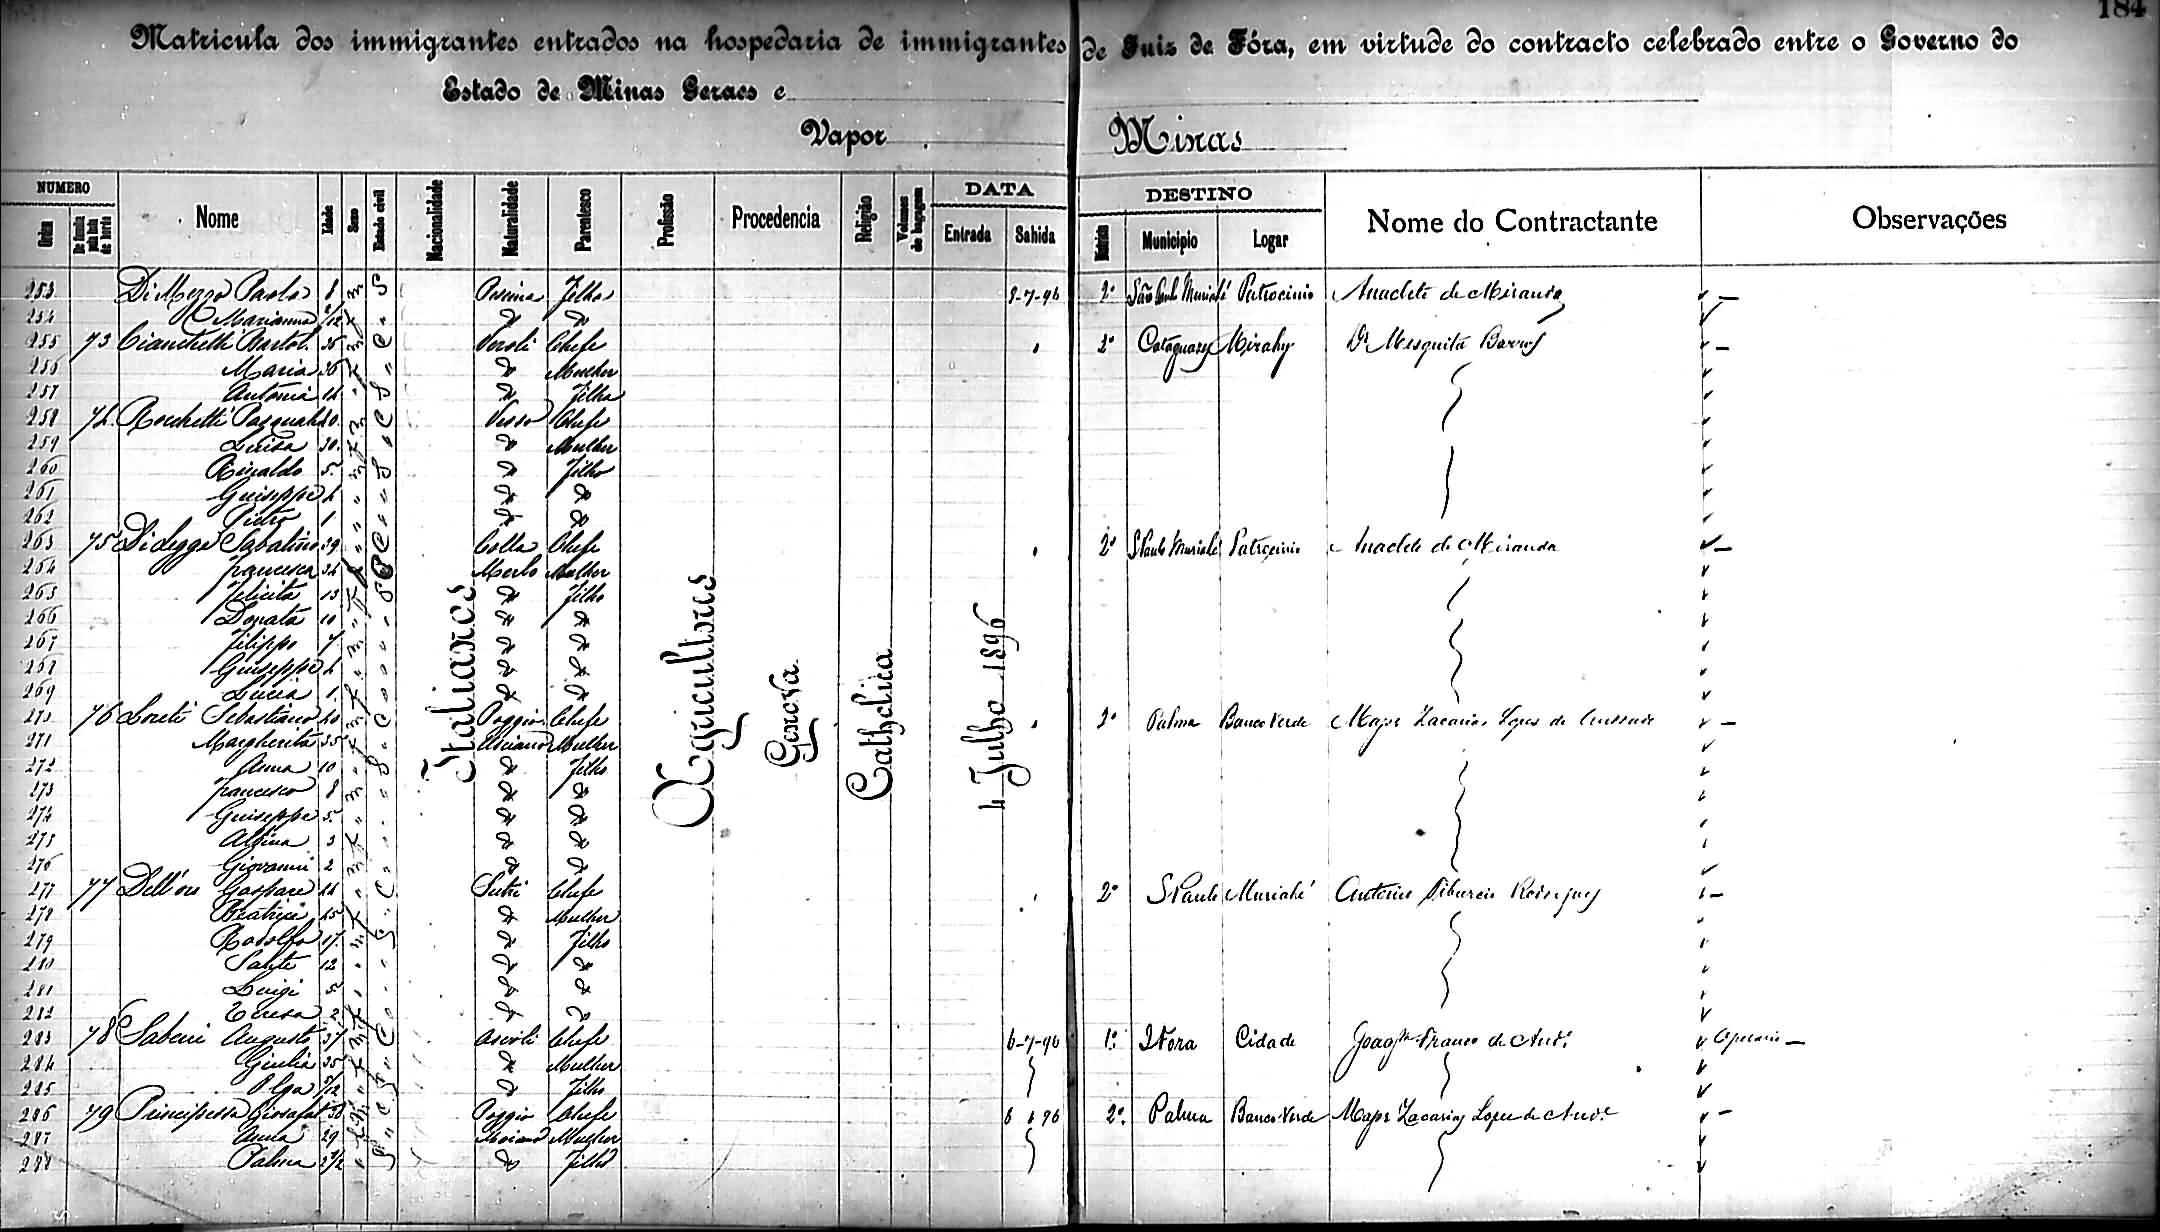 184
Matricula dos immigrantes entrados na hospedaria de immigrantes de Juiz de Fóra, em virtude do contracto celebrado entre o Governo do
Estado de Minas Geraes e
Vapor Minas
NUMERO DATA DESTINO
Ordem Nome Idade Sexo Estado civil Nacionalidade Naturalidade Parentesco Profissão Procedencia Religião Volumes de bagagem Entrada Sahida Municipio Logar Nome do Contractante Observações
253 Di Mezzo Paolo 8 m S Filho 8-7-96 2º São Paulo Muriahé Patrocinio Anacleto de Miranda
254 Marianna /12 f " " "
255 73 Cianchetti Bartol. 35 m C Veroli Chefe " 2º Cataguazes Mirahy Dr Mesquita Barros
256 Maria 36 f " " Mulher
257 Antonia 14 " S " Filha
258 74 Rocchetti Pasquale 40 m C Chefe
259 Luisa 30 f " " Mulher
260 Rinaldo 5 m S " Filho
261 Giuseppe 4 " " " "
262 Pietro 1 " " " "
263 75 Di Legge Sabatino 39 " C Colle Chefe " 2º S Paulo Muriahé Patrocinio Anacleto de Miranda
264 Francesca 34 f C Mulher
265 Felicita 13 f S " Filho
266 Donata 10 " " " "
267 Filippo 7 m " " "
268 Giuseppe 4 " " " "
269 Lucia 1 f " " "
270 76 Loreti Sebastiano 40 m C Poggio Chefe " 2º Palma Banco Verde Major Zacarias Lopes de Andrade
271 Margherita 35 f " Mulher
272 Anna 10 " S " Filho
273 Francesco 8 m " " "
274 Giuseppe 5 " " " "
275 3 f " " "
276 Giovanni 2 m " " "
277 77 Dell'oro Gaspare 44 " C Sutri Chefe " 2º S Paulo Muriahé Antonio Tiburcio Rodrigues
278 Beatrice 45 f " " Mulher
279 Rodolfo 17 m S " Filho
280 Sante 12 " " " "
281 Luigi 5 " " " "
282 Teresa 2 f " " "
283 78 Sabeni Augusto 37 m C Chefe 6-7-96 1º J Fora Cidade Joaqm Franco de Andе Operario
284 Giulia 35 f " " Mulher
285 Olga /12 " S " Filho
286 79 Principessa Giosafat m C Poggio Chefe 6 " 96 2º Palma Banco Verde Major Zacarias Lopes de Ande
287 Anna 29 f " Mulher
288 Palma 2 1/2 " S " Filho
Italianos
Agricultores
Genova
Catholica
4 Julho 1896